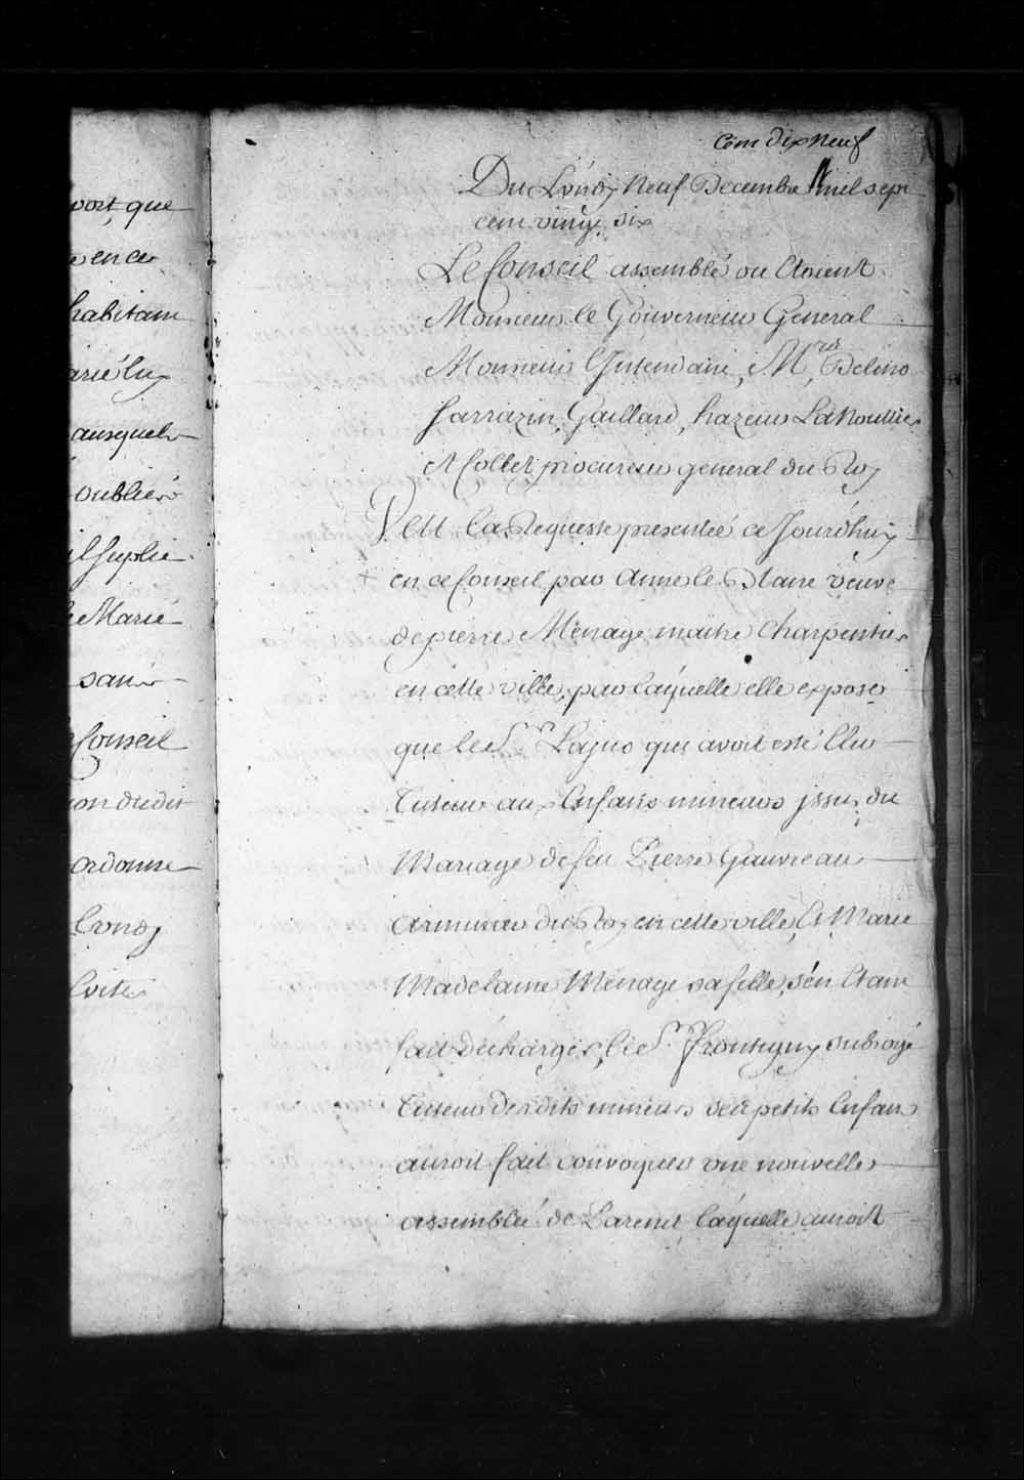 vort que
ence
habitant
arié luy
ausquels
oubliér
il suplie
Marié
sans
Conseil
on dudit
ordonne
Lundy
Cent dix Neuf
Du Lundy Neuf Decembre Mil sept
cent vingt six
Le Conseil assemblé ou Etoient
Monsieur le Gouverneur General
Monsieur L'Intendant, Mrs. Delino
Sarrazin, Gaillard, hazeur LaNoullier
Et Collet procureur general du Roy
Veu la Requeste presentée ce Jourd'huy
en ce Conseil par Anne le Roane veuve
de pierre Menage maitre Charpentier
en cette ville, par laquelle elle expose
que le Sr. Lajus qui avoit esté Elu
Tuteur aux Enfans mineurs jssus du
Mariage de feu Pierre Gauvreau
armurier du Roy en cette ville, Et Marie
Madelaine Menage sa fille, s'en Etant
fait décharger, le Sr. frontigny subrogé
Tuteur desdits mineurs ses petits Enfans
auroit fait convoquer une nouvelle
assemblée de Parents laquelle auroit